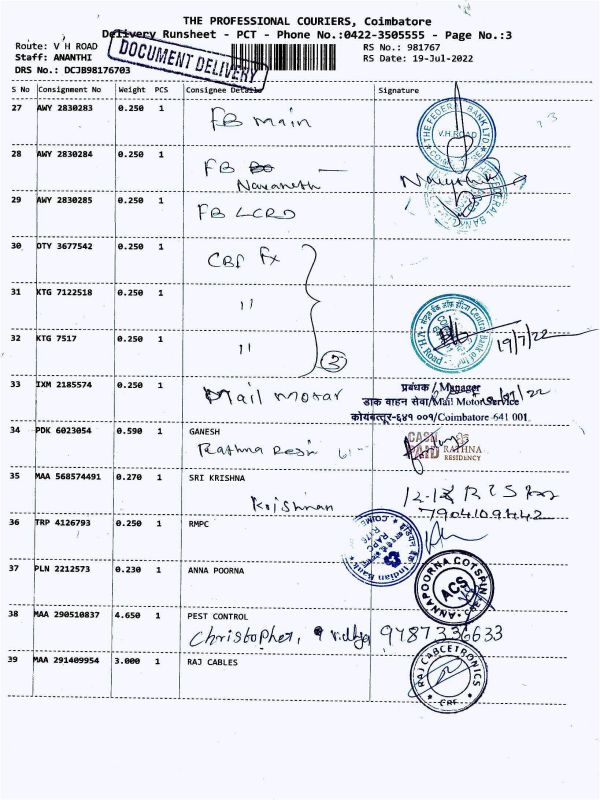 THE PROFESSIONAL COURIERS, Coimbatore
Delivery Runsheet - PCT - Phone No.:0422-3505555 - Page No.:3
Route: V H ROAD RS No.: 981767
Staff: ANANTHI RS Date: 19-Jul-2022
DRS No.: DCJB98176703
DOCUMENT DELIVERY
S No Consignment No Weight PCS Consignee Details Signature
27 AWY 2830283 0.250 1 FB Main
THE FEDERAL BANK LTD
V.H ROAD
28 AWY 2830284 0.250 1 FB
Navaneeth
FEDERAL BANK
29 AWY 2830285 0.250 1 FB LCRD
30 OTY 3677542 0.250 1 CBI Fx
31 KTG 7122518 0.250 1 "
Central Bank of
Road
32 KTG 7517 0.250 1 "
3
19/7/22
33 IXM 2185574 0.250 1 Mail Motor
प्रबंधक / Manager
डाक वाहन सेवा/Mail Motor Service
कोयंबत्तूर-६४१ ००१/Coimbatore-641 001
34 PDK 6023054 0.590 1 GANESH
Rathna Resi
CASH
PAID
RATHNA
RESIDENCY
35 MAA 568574491 0.270 1 SRI KRISHNA
Krishnan
7904109442
36 TRP 4126793 0.250 1 RMPC
Indian Bank
RAPC
37 PLN 2212573 0.230 1 ANNA POORNA
ANNAPOORNA COTSPIN
ACS
38 MAA 290510837 4.650 1 PEST CONTROL
Christopher, Vidhya 9787336633
39 MAA 291409954 3.000 1 RAJ CABLES
RAJ CABCETRONICS
CBE